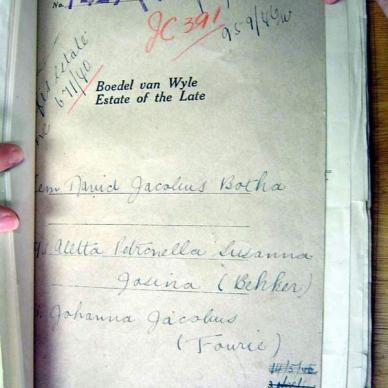 No.
JC 391
959/46
Old Estate
671/40
Boedel van Wyle
Estate of the Late
David Jacobus Botha
Aletta Petronella Susanna
Josina (Bekker)
Johanna Jacobus
(Fourie)
14/5/46